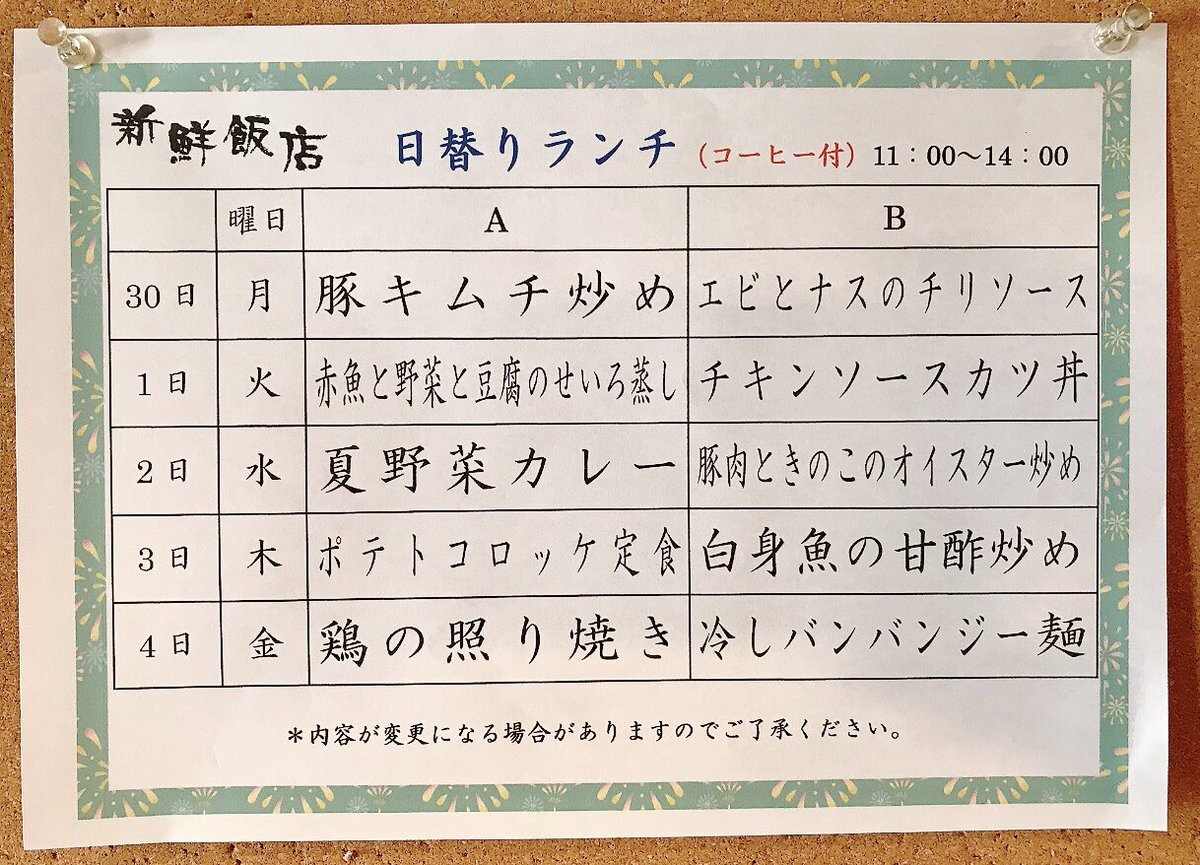 新鮮飯店 日替りランチ (コーヒー付) 11:00～14:00
曜日 A B
30日 月 豚キムチ炒め エビとナスのチリソース
1日 火 赤魚と野菜と豆腐のせいろ蒸し チキンソースカツ丼
2日 水 夏野菜カレー 豚肉ときのこのオイスター炒め
3日 木 ポテトコロッケ定食 白身魚の甘酢炒め
4日 金 鶏の照り焼き 冷しバンバンジー麺
＊内容が変更になる場合がありますのでご了承ください。